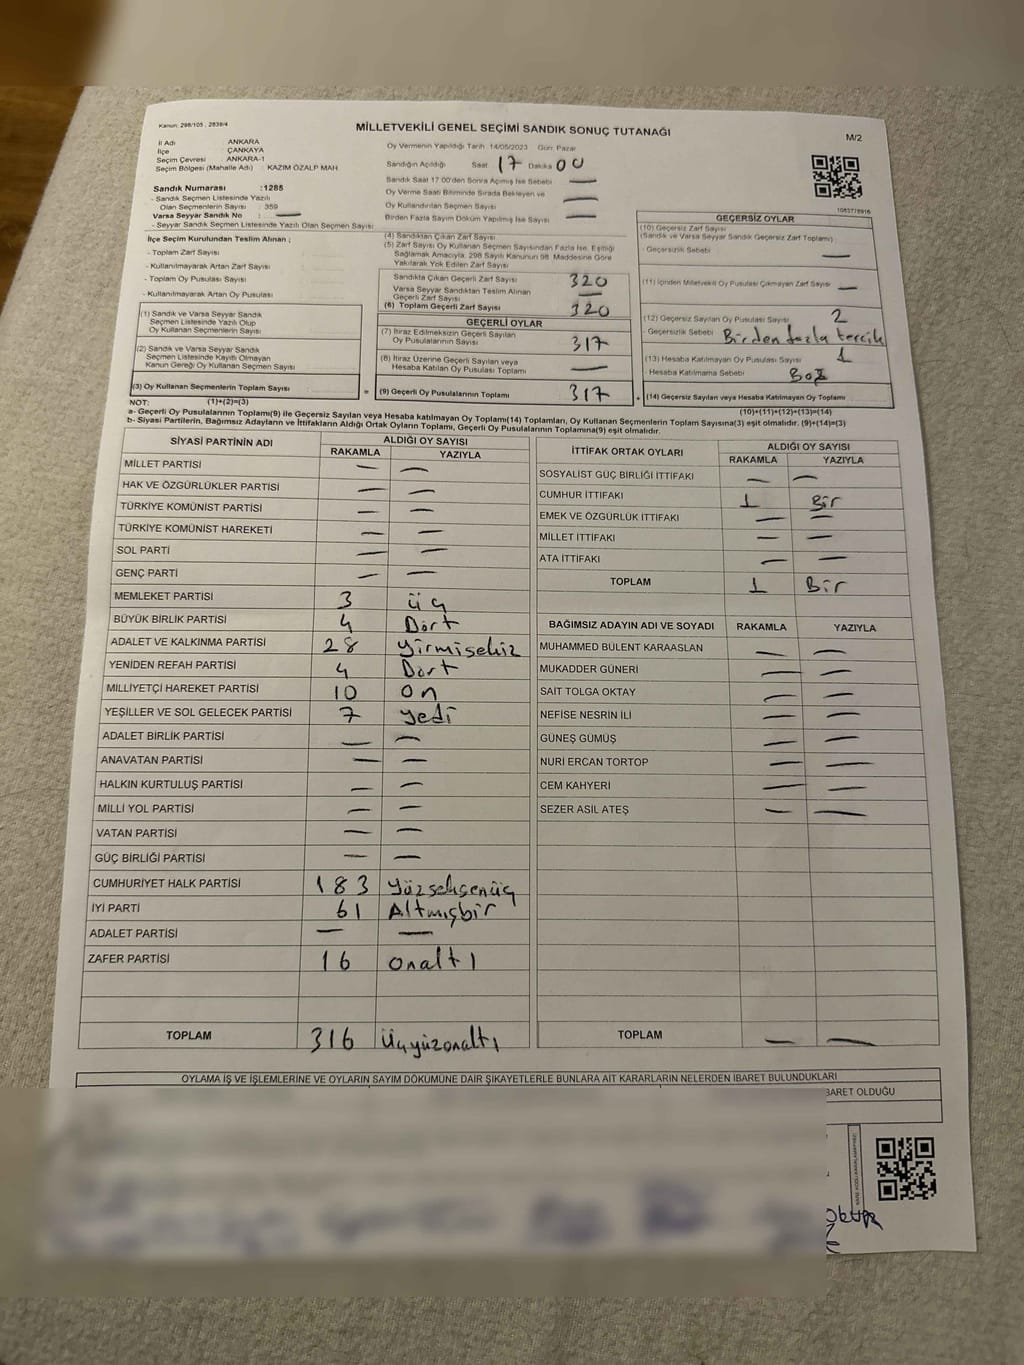 Kanun: 298/105 , 2839/4
MİLLETVEKİLİ GENEL SEÇİMİ SANDIK SONUÇ TUTANAĞI
M/2
İl Adı : ANKARA
İlçe : ÇANKAYA
Seçim Çevresi : ANKARA-1
Seçim Bölgesi (Mahalle Adı) : KAZIM ÖZALP MAH
Sandık Numarası :1285
- Sandık Seçmen Listesinde Yazılı
Olan Seçmenlerin Sayısı : 359
Varsa Seyyar Sandık No : —
- Seyyar Sandık Seçmen Listesinde Yazılı Olan Seçmen Sayısı
Oy Vermenin Yapıldığı Tarih :14/05/2023 Gün: Pazar
Sandığın Açıldığı Saat 17 Dakika 00
Sandık Saat 17.00'den Sonra Açılmış İse Sebebi —
Oy Verme Saati Bitiminde Sırada Bekleyen ve
Oy Kullandırılan Seçmen Sayısı —
Birden Fazla Sayım Döküm Yapılmış İse Sayısı —
İlçe Seçim Kurulundan Teslim Alınan ;
- Toplam Zarf Sayısı
- Kullanılmayarak Artan Zarf Sayısı
- Toplam Oy Pusulası Sayısı
- Kullanılmayarak Artan Oy Pusulası
(1) Sandık ve Varsa Seyyar Sandık
Seçmen Listesinde Yazılı Olup
Oy Kullanan Seçmenlerin Sayısı
(2) Sandık ve Varsa Seyyar Sandık
Seçmen Listesinde Kayıtlı Olmayan
Kanun Gereği Oy Kullanan Seçmen Sayısı
(3) Oy Kullanan Seçmenlerin Toplam Sayısı
(4) Sandıktan Çıkan Zarf Sayısı
(5) Zarf Sayısı Oy Kullanan Seçmen Sayısından Fazla İse, Eşitliği
Sağlamak Amacıyla; 298 Sayılı Kanunun 98. Maddesine Göre
Yakılarak Yok Edilen Zarf Sayısı
Sandıkta Çıkan Geçerli Zarf Sayısı 320
Varsa Seyyar Sandıktan Teslim Alınan
Geçerli Zarf Sayısı —
(6) Toplam Geçerli Zarf Sayısı 320
GEÇERLİ OYLAR
(7) İtiraz Edilmeksizin Geçerli Sayılan
Oy Pusulalarının Sayısı 317
(8) İtiraz Üzerine Geçerli Sayılan veya
Hesaba Katılan Oy Pusulası Toplamı —
(9) Geçerli Oy Pusulalarının Toplamı 317
GEÇERSİZ OYLAR
1063778916
(10) Geçersiz Zarf Sayısı
(Sandık ve Varsa Seyyar Sandık Geçersiz Zarf Toplamı)
- Geçersizlik Sebebi —
(11) İçinden Milletvekili Oy Pusulası Çıkmayan Zarf Sayısı —
(12) Geçersiz Sayılan Oy Pusulası Sayısı 2
- Geçersizlik Sebebi Birden fazla tercih
(13) Hesaba Katılmayan Oy Pusulası Sayısı 1
- Hesaba Katılmama Sebebi Boş
(14) Geçersiz Sayılan veya Hesaba Katılmayan Oy Toplamı
NOT: (1)+(2)=(3) (10)+(11)+(12)+(13)=(14)
a- Geçerli Oy Pusulalarının Toplamı(9) ile Geçersiz Sayılan veya Hesaba katılmayan Oy Toplamı(14) Toplamları, Oy Kullanan Seçmenlerin Toplam Sayısına(3) eşit olmalıdır. (9)+(14)=(3)
b- Siyasi Partilerin, Bağımsız Adayların ve İttifakların Aldığı Ortak Oyların Toplamı, Geçerli Oy Pusulalarının Toplamına(9) eşit olmalıdır.
SİYASİ PARTİNİN ADI ALDIĞI OY SAYISI
RAKAMLA YAZIYLA
MİLLET PARTİSİ — —
HAK VE ÖZGÜRLÜKLER PARTİSİ — —
TÜRKİYE KOMÜNİST PARTİSİ — —
TÜRKİYE KOMÜNİST HAREKETİ — —
SOL PARTİ — —
GENÇ PARTİ — —
MEMLEKET PARTİSİ 3 üç
BÜYÜK BİRLİK PARTİSİ 4 Dört
ADALET VE KALKINMA PARTİSİ 28 yirmisekiz
YENİDEN REFAH PARTİSİ 4 Dört
MİLLİYETÇİ HAREKET PARTİSİ 10 on
YEŞİLLER VE SOL GELECEK PARTİSİ 7 yedi
ADALET BİRLİK PARTİSİ — —
ANAVATAN PARTİSİ — —
HALKIN KURTULUŞ PARTİSİ — —
MİLLİ YOL PARTİSİ — —
VATAN PARTİSİ — —
GÜÇ BİRLİĞİ PARTİSİ — —
CUMHURİYET HALK PARTİSİ 183 Yüzseksenüç
İYİ PARTİ 61 Altmışbir
ADALET PARTİSİ — —
ZAFER PARTİSİ 16 onaltı
TOPLAM 316 Üçyüzonaltı
İTTİFAK ORTAK OYLARI ALDIĞI OY SAYISI
RAKAMLA YAZIYLA
SOSYALİST GÜÇ BİRLİĞİ İTTİFAKI — —
CUMHUR İTTİFAKI 1 Bir
EMEK VE ÖZGÜRLÜK İTTİFAKI — —
MİLLET İTTİFAKI — —
ATA İTTİFAKI — —
TOPLAM 1 Bir
BAĞIMSIZ ADAYIN ADI VE SOYADI RAKAMLA YAZIYLA
MUHAMMED BÜLENT KARAASLAN — —
MUKADDER GÜNERİ — —
SAİT TOLGA OKTAY — —
NEFİSE NESRİN İLİ — —
GÜNEŞ GÜMÜŞ — —
NURİ ERCAN TORTOP — —
CEM KAHYERİ — —
SEZER ASİL ATEŞ — —
TOPLAM — —
OYLAMA İŞ VE İŞLEMLERİNE VE OYLARIN SAYIM DÖKÜMÜNE DAİR ŞİKAYETLERLE BUNLARA AİT KARARLARIN NELERDEN İBARET BULUNDUKLARI
BARET OLDUĞU